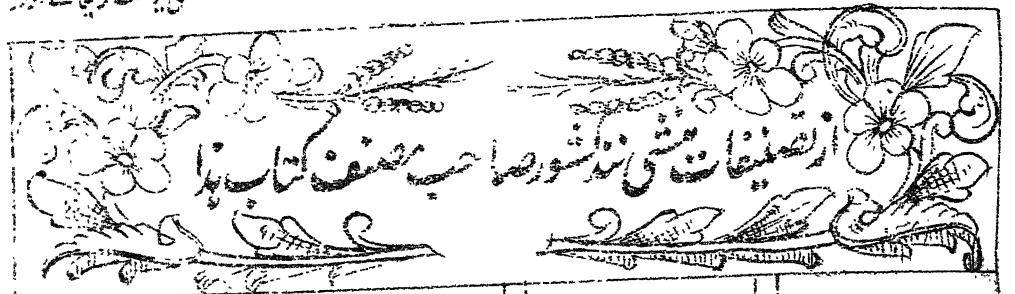 از تصنیفات منشی نندکشور صاحب مصنف کتاب ہذا